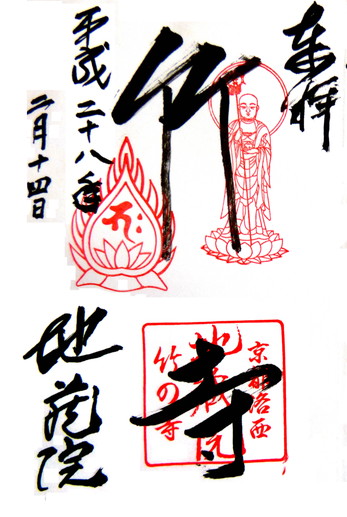 奉拝
竹寺
平成二十八年
二月十四日
地蔵院
京都洛西
地蔵院
竹の寺